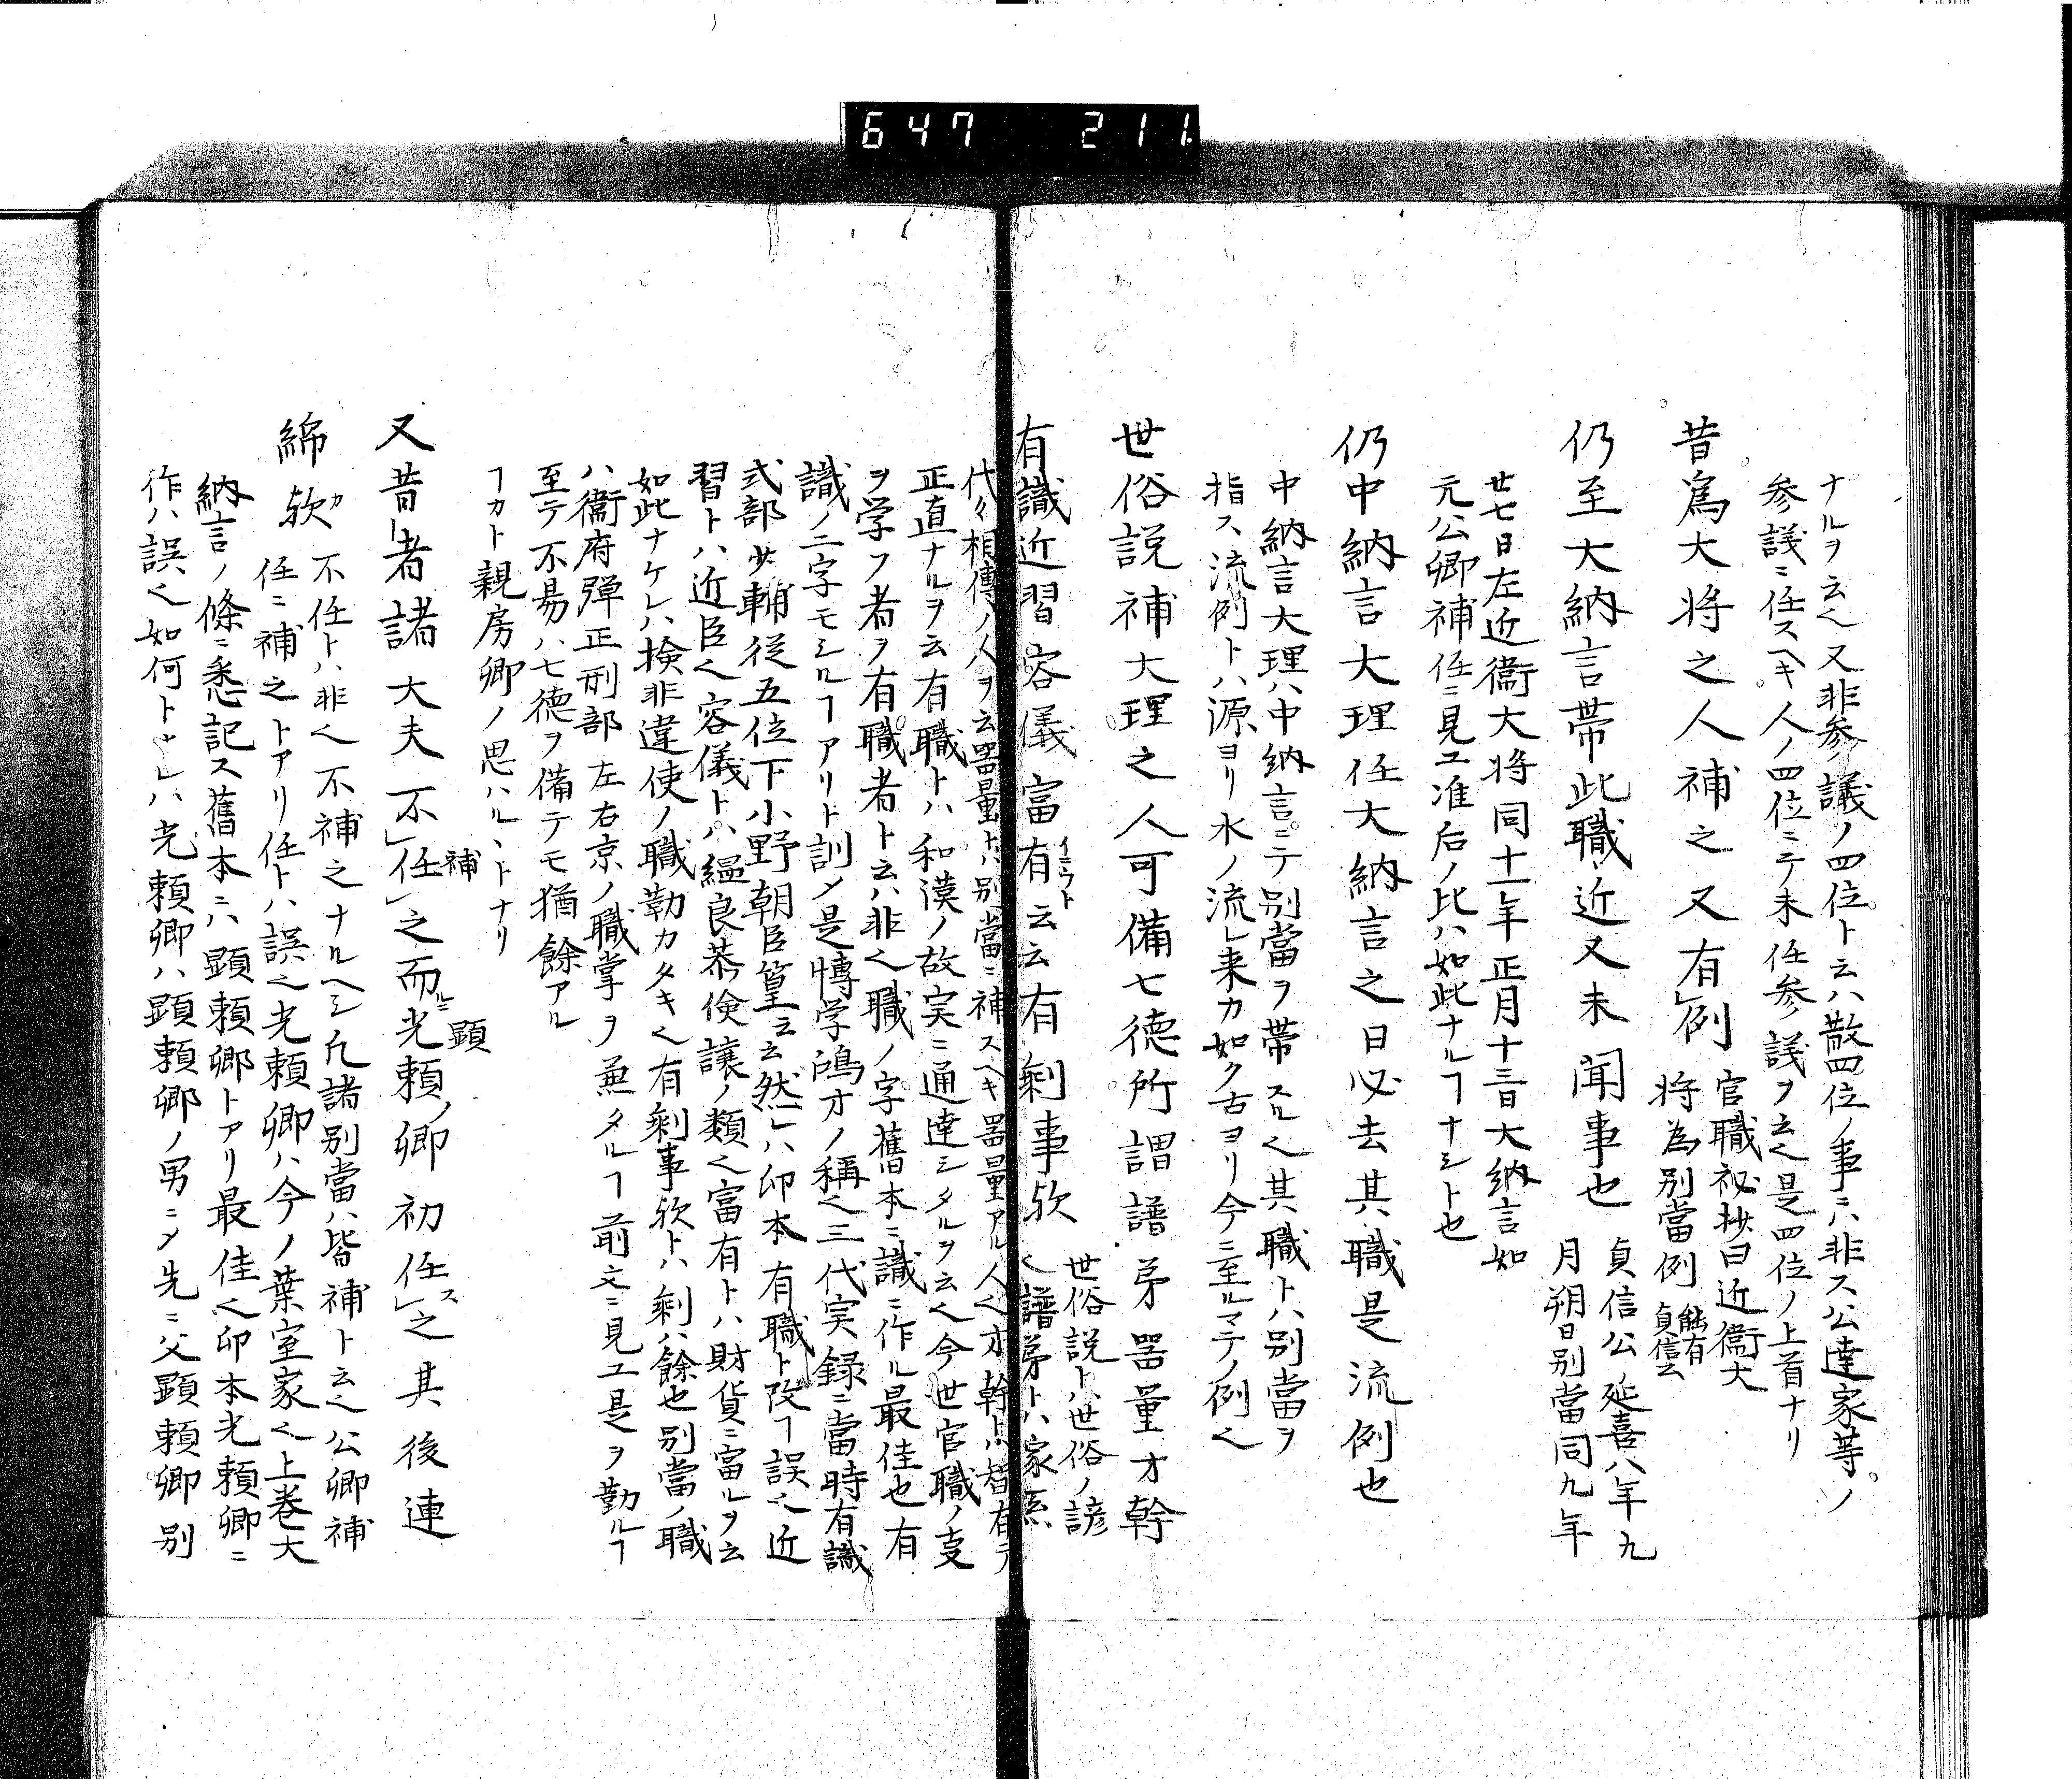 647 211
ナルヲ云く又非参議ノ四位ト云ハ散四位ノ事ニハ非ス公達家等ノ
参議ニ任スヘキ人ノ四位ニテ未任参議ヲ云く是四位ノ上首ナリ
昔為大将之人補之又有例 官職祕抄曰近衞大
将為別當例 貞信公
仍至大納言帯此職近又未聞事也 貞信公延喜八年九
月朔日別當同九年
廿七日左近衞大将同十一年正月十三日大納言如
元公卿補任ニ見エ准后ノ比ハ如此ナルヿナシト也
仍中納言大理任大納言之日必去其職是流例也
中納言大理ハ中納言ニテ別當ヲ帯スルく其職トハ別當ヲ
指ス流例トハ源ヨリ水ノ流レ来カ如ク古ヨリ今ニ至ルマテノ例く
世俗説補大理之人可備七徳所謂譜苐器量才幹
有識近習容儀富有云云有剰事欤 世俗説トハ世俗ノ諺
く譜苐トハ家系
代々相傳ノ人ヲ云器量トハ別當ニ補スヘキ器量アル人く才幹トハ智有テ
正直ナルヲ云有職トハ和漢ノ故実ニ通達シタルヲ云く今世官職ノ支
ヲ学フ者ヲ有職者ト云ハ非く職ノ字舊本ニ識ニ作ル最佳也有
識ノ二字モシルヿアリト訓メ是博学鴻才ノ稱く三代実録ニ當時有識
式部少輔従五位下小野朝臣篁云云然レハ印本有職ト改ヿ誤く近
習トハ近臣く容儀トハ縕良恭儉讓ノ類く富有トハ財貨ニ富ルヲ云
如此ナケレハ検非違使ノ職勤カタキく有剰事欤トハ剰ハ餘也別當ノ職
ハ衞府彈正刑部左右京ノ職掌ヲ兼タルヿ前文ニ見エ是ヲ勤ルヿ
至テ不易ハ七徳ヲ備テモ猶餘アル
ヿカト親房卿ノ思ハルヽトナリ
又昔者諸大夫不任補之而光顕頼ノ卿初任ス之其後連
綿欤 不任トハ非く不補之ナルヘシ凡諸別當ハ皆補ト云く公卿補
任ニ補之トアリ任トハ誤く光頼卿ハ今ノ葉室家く上巻大
納言ノ條ニ悉記ス舊本ニハ顕頼卿トアリ最佳く印本光頼卿ニ
作ハ誤く如何トナレハ光頼卿ハ顕頼卿ノ男ニメ先ニ父顕頼卿別